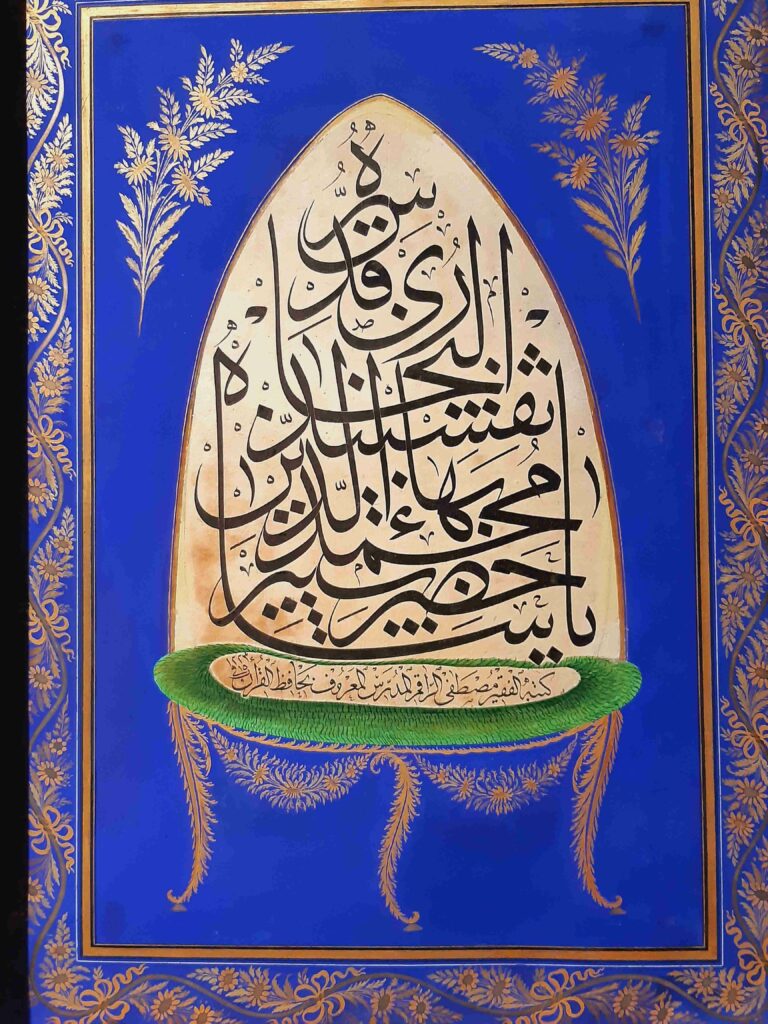 يا حضرت پير
محمد بهاء الدين
نقشبند
البخارى
قدس سره
كتبه الفقير مصطفى الراقم المدرس المعروف بحافظ القرآن